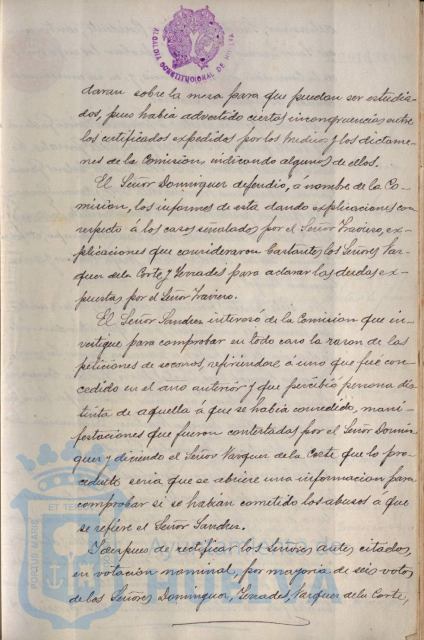 ALCALDIA CONSTITUCIONAL DE HUELVA
daran sobre la mesa para que puedan ser estudia-
dos, pues había advertido ciertas incongruencias entre
los certificados expedidos por los Médicos y los dictame-
nes de la Comision, indicando algunos de ellos.
El Señor Dominguez defendio, á nombre de la Co-
mision, los informes de esta dando explicaciones con
respecto á los casos señalados por el Señor Traviero, ex-
plicaciones que consideraron bastantes los Señores Vaz-
quez de la Corte y para aclarar las dudas ex-
puestas por el Señor Traviero.
El Señor Sanchez interesó de la Comision que in-
vestigue para comprobar en todo caso la razon de las
peticiones de socorros, refiriendose á uno que fué con-
cedido en el año anterior y que percibió persona dis-
tinta de aquella á que se había concedido, mani-
festaciones que fueron contestadas por el Señor Domin-
guez y diciendo el Señor Vazquez de la Corte que lo pro-
cedente seria que se abriere una informacion para
comprobar si se habian cometido los abusos á que
se refiere el Señor Sanchez.
Y despues de rectificar los Señores antes citados,
en votación nominal, por mayoria de seis votos
de los Señores Dominguez, Vazquez de la Corte,
PORTUS MARIS ET TE
Ayuntamiento de
HUELVA